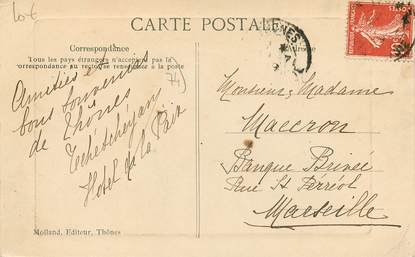 10 €
CARTE POSTALE
Correspondance
Tous les pays étrangers n'acceptent pas la
correspondance au recto, se renseigner à la poste
74)
Amitiés et
bons souvenirs
de Thônes
Hotel de la Paix
Molland, Editeur, Thônes
Monsieur, Madame
Maccron
Banque Privée
Rue St Ferréol
Marseille